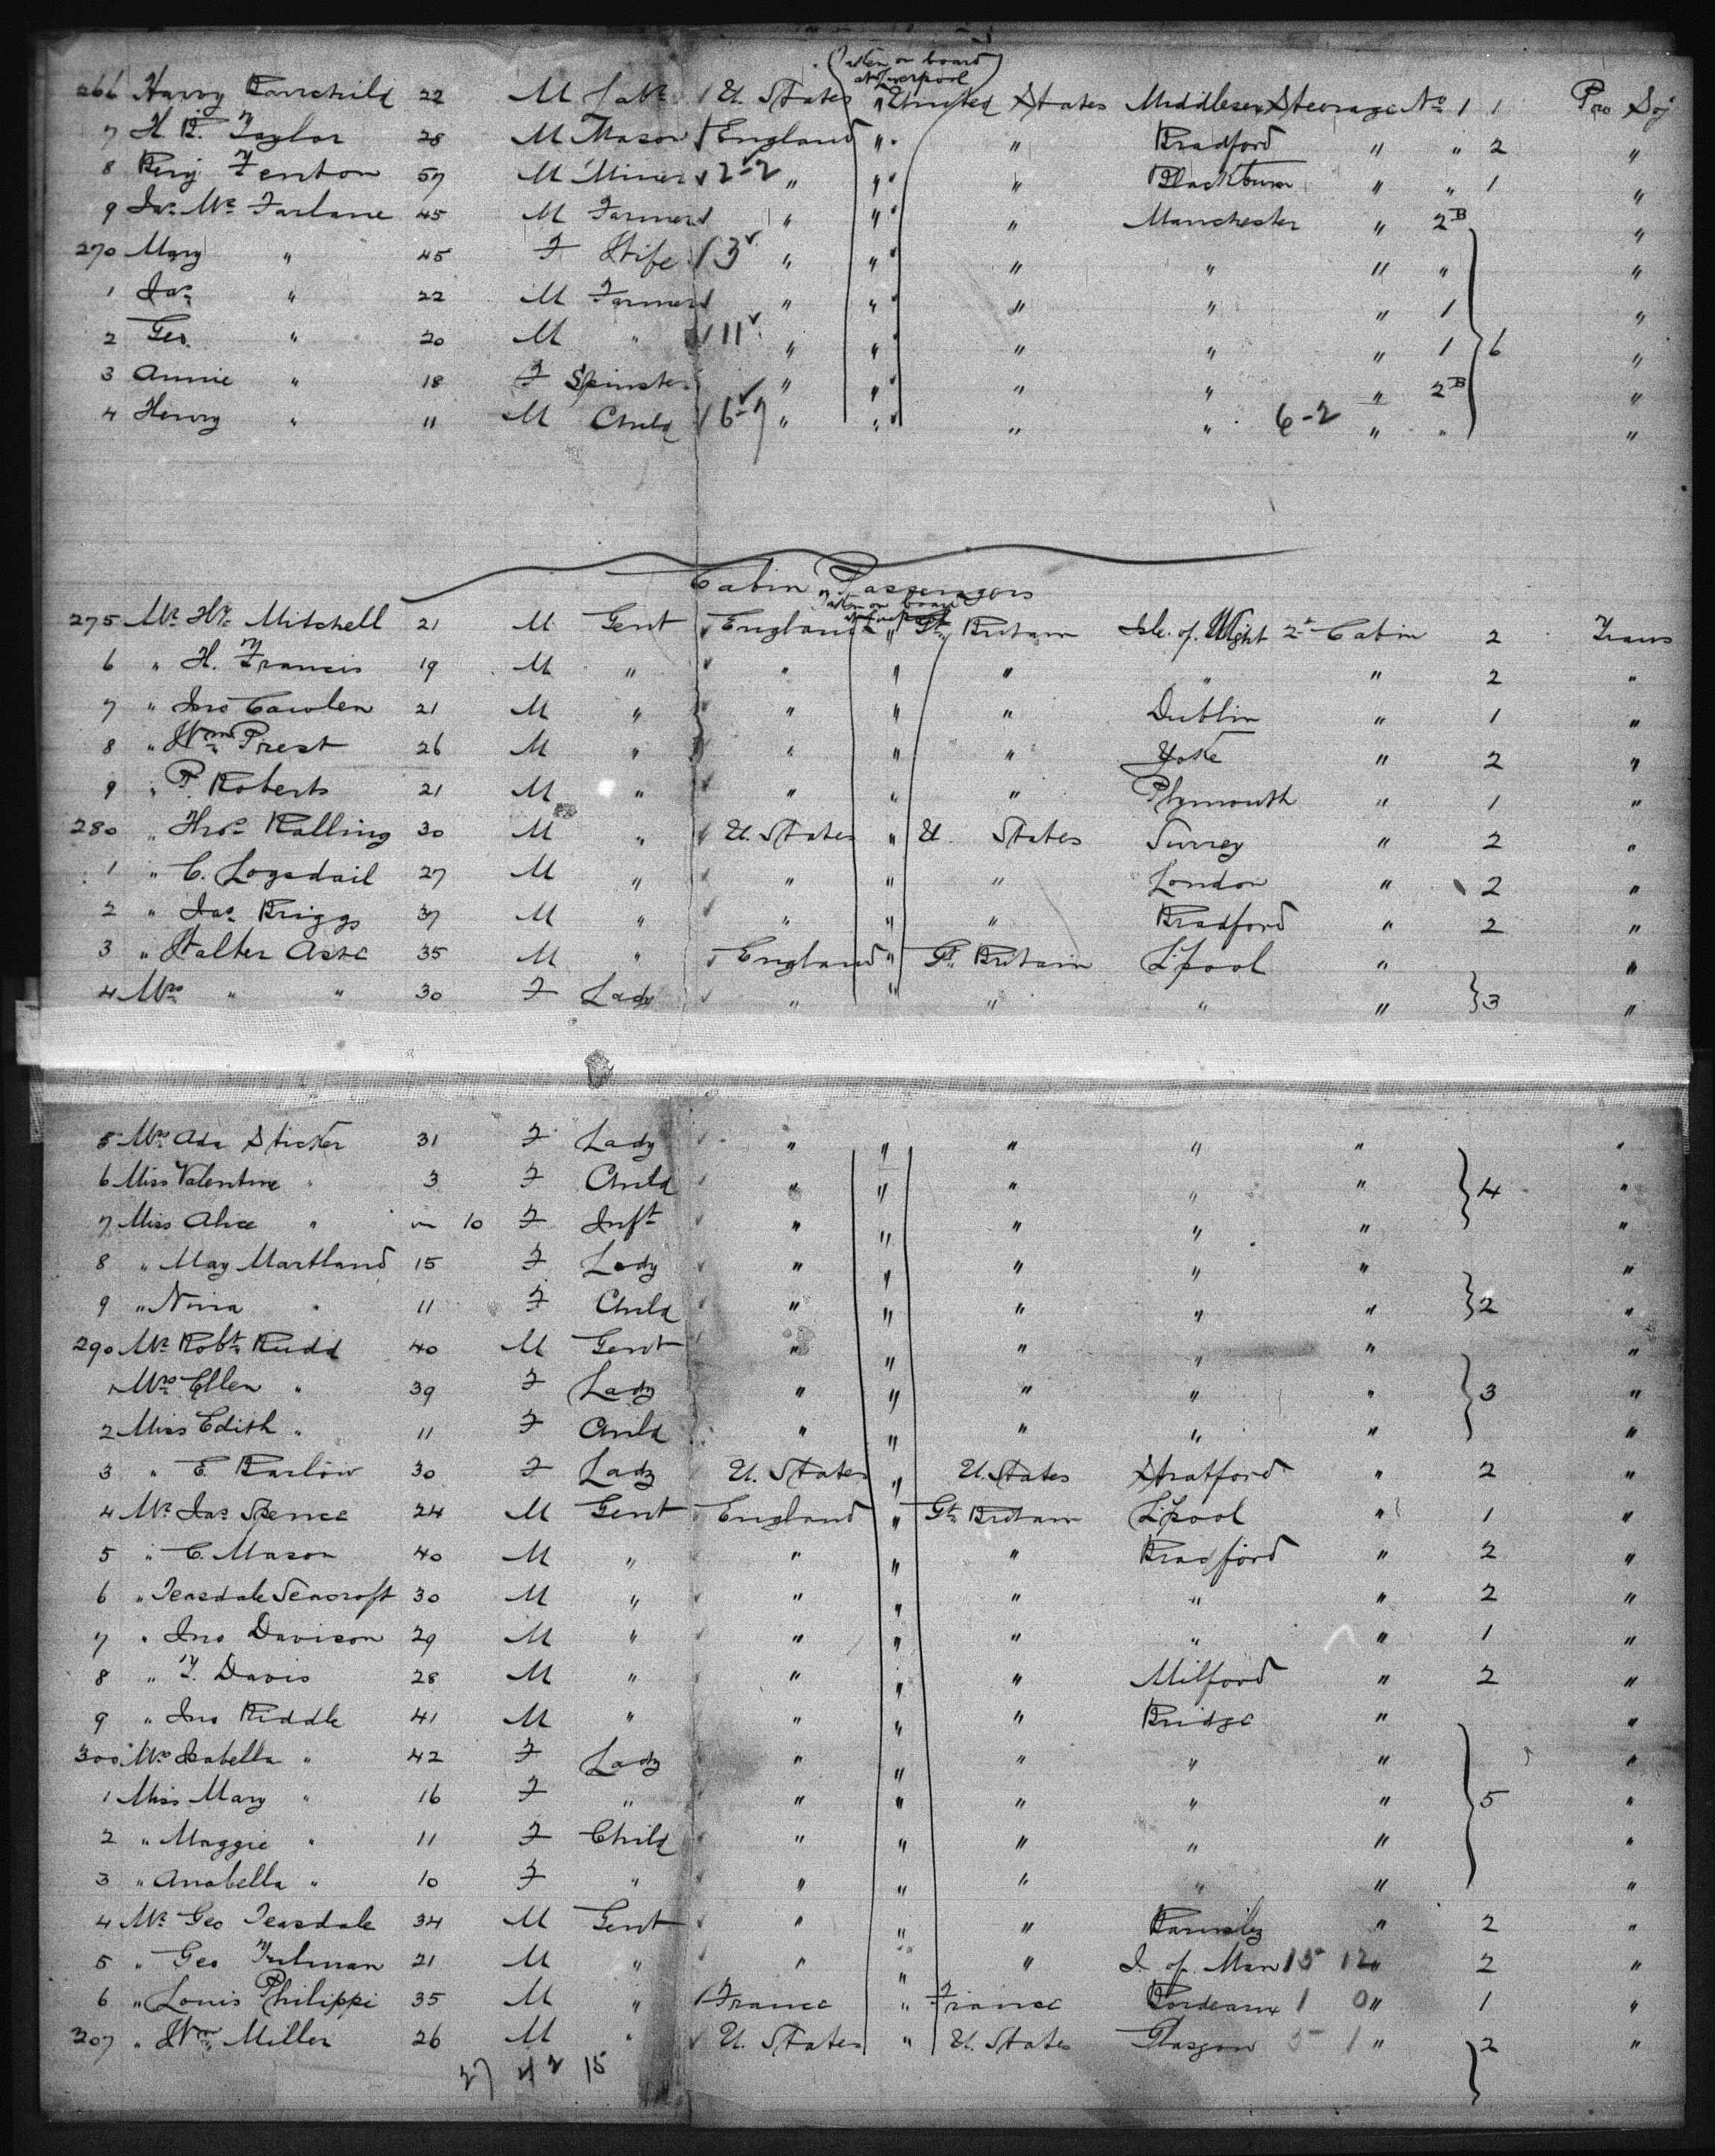 (Taken on board
at Liverpool)
266 Harry Fairchild 22 M Lab. U. States " United States Middlesex Steerage No 1 1 Pro Soj
7 H. R. Taylor 28 M Mason England " " Bradford " " 2 "
8 Benj Fenton 57 M Miner 2-2 " " " Blackburn " " 1 "
9 Jas. Mc Farlane 45 M Farmer " " " Manchester " 2B "
270 Mary " 45 F Wife 3 " " " " " " "
1 Jas " 22 M Farmer " " " " " 1 "
2 Geo. " 20 M " 11 " " " " " 1 6 "
3 Annie " 18 F Spinster " " " " " 2B "
4 Henry " 11 M Child 6-7 " " " " 6-2 " " "
Cabin Passengers
Taken on board
at Liverpool
275 Mr. Hy. Mitchell 21 M Gent England " Gt. Britain Isle of Wight 2d Cabin 2 Trans
6 " H. Francis 19 M " " " " " " 2 "
7 " Jno Cawlen 21 M " " " " Dublin " 1 "
8 " Wm Prest 26 M " " " " York " 2 "
9 " P. Roberts 21 M " " " " Plymouth " 1 "
280 " Thos. Ralling 30 M " U. States " U. States Surrey " 2 "
1 " C. Logsdail 27 M " " " " London " 2 "
2 " Jas. Briggs 37 M " " " " Bradford " 2 "
3 " Walter Aske 35 M " England " Gt. Britain L'pool " "
4 Mrs " " 30 F Lady " " " " " 3 "
5 Mrs Ada Sticker 31 F Lady " " " " " "
6 Miss Valentine " 3 F Child " " " " " 4 "
7 Miss Alice " 10 F Inft " " " " " "
8 " May Martland 15 F Lady " " " " " "
9 " Nina " 11 F Child " " " " " 2 "
290 Mr. Robt. Rudd 40 M Gent " " " " " "
1 Mrs Ellen " 39 F Lady " " " " " 3 "
2 Miss Edith " 11 F Child " " " " " "
3 " E. Barlow 30 F Lady U. States " U. States Stratford " 2 "
4 Mr. Jas. Spence 24 M Gent England " Gt. Britain L'pool " 1 "
5 " C. Mason 40 M " " " " Bradford " 2 "
6 " Teasdale Seacroft 30 M " " " " " " 2 "
7 " Jno Davison 29 M " " " " " " 1 "
8 " T. Davis 28 M " " " " Milford " 2 "
9 " Jno Riddle 41 M " " " " Bridge " "
300 Mrs Isabella " 42 F Lady " " " " " "
1 Miss Mary " 16 F " " " " " " 5 "
2 " Maggie " 11 F Child " " " " " "
3 " Anabella " 10 F " " " " " " "
4 Mr. Geo Teasdale 34 M Gent " " " Barnsley " 2 "
5 " Geo 21 M " " " " I. of Man 15 12 " 2 "
6 " Louis Philippi 35 M " France " France Bordeaux 1 0 " 1 "
307 " Wm. Miller 26 M " U. States " U. States Glasgow 5 1 " 2 "
27 42 15